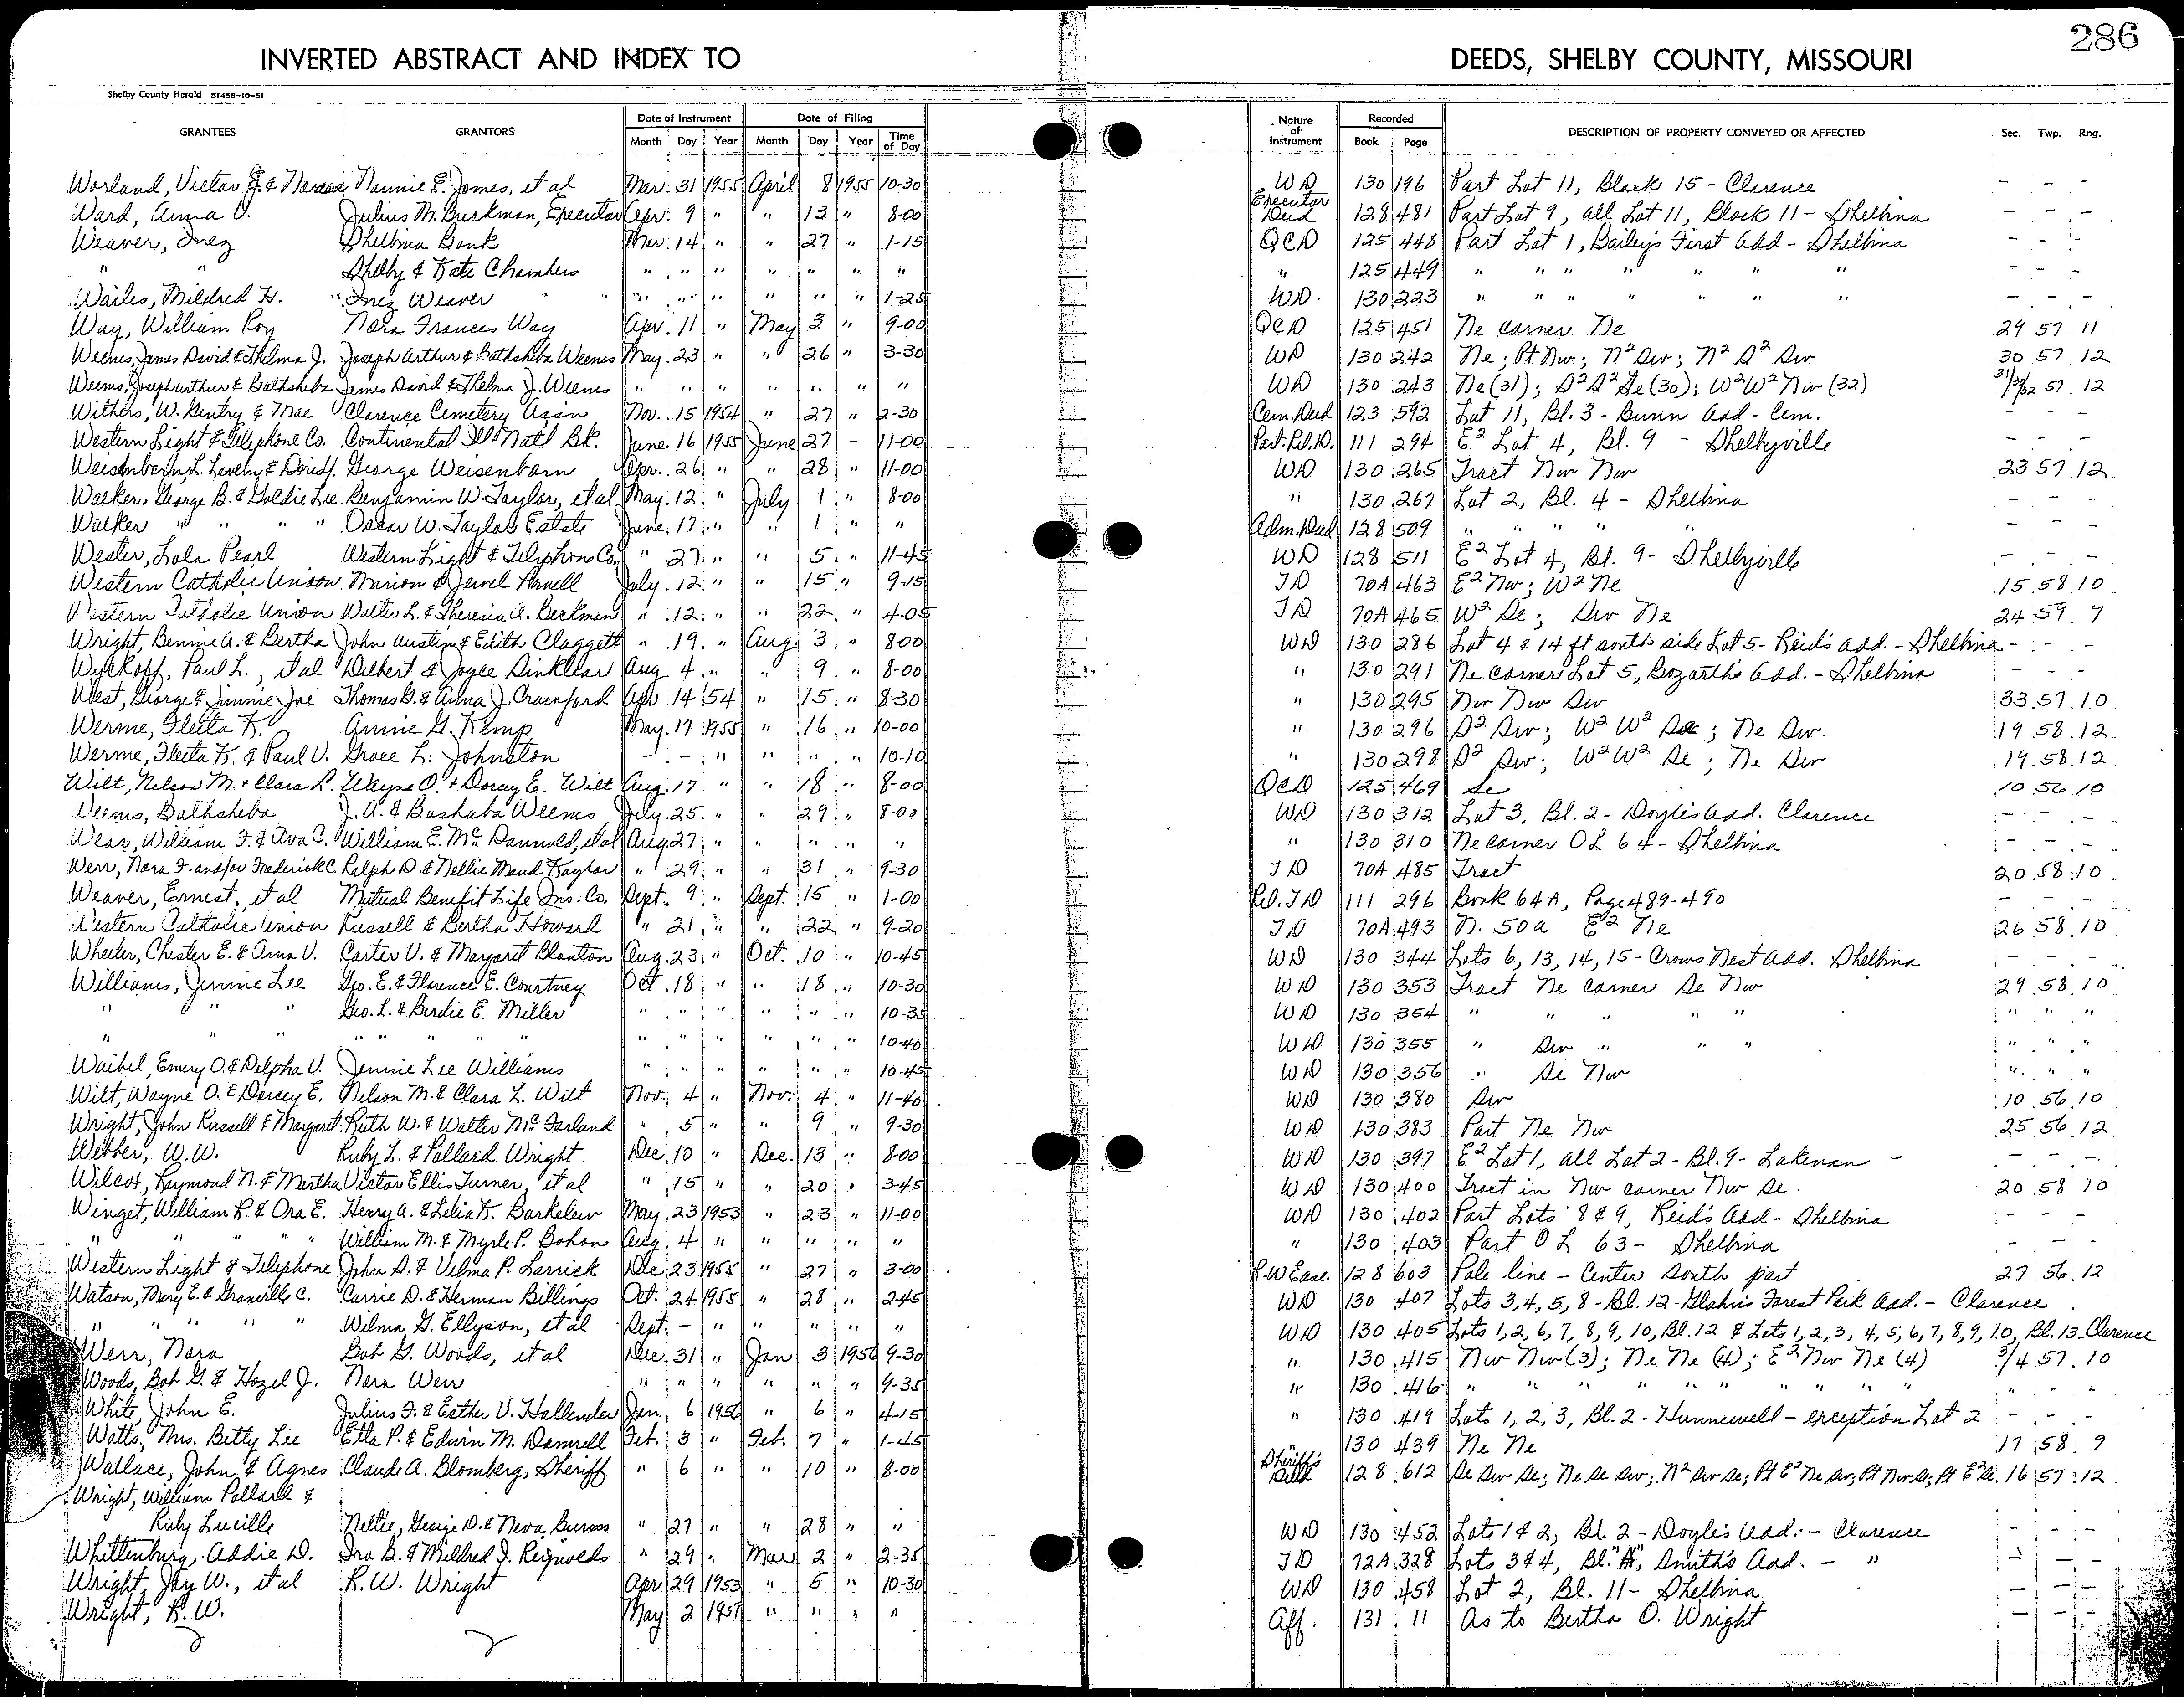 286
INVERTED ABSTRACT AND INDEX TO DEEDS, SHELBY COUNTY, MISSOURI
Shelby County Herald 51458-10-51
GRANTEES GRANTORS Date of Instrument Date of Filing Nature of Instrument Recorded DESCRIPTION OF PROPERTY CONVEYED OR AFFECTED Sec. Twp. Rng.
Month Day Year Month Day Year Time of Day Book Page
Worland, Victor J. & Nannie E. James, et al Mar 31 1955 April 8 1955 10-30 WD 130 196 Part Lot 11, Block 15 - Clarence - - -
Ward, Anna O. Julius M. Buckman, Executor Apr 9 " " 13 " 8-00 Executor Deed 128 481 Part Lot 9, all Lot 11, Block 11 - Shelbina - - -
Weaver, Inez Shelbina Bank Mar 14 " " 27 " 1-15 QCD 125 448 Part Lot 1, Bailey's First Add - Shelbina - - -
" " Shelby & Kate Chambers " " " " " " " " 125 449 " " " " " " " - - -
Wailes, Mildred H. Inez Weaver " " " " " " 1-25 WD. 130 223 " " " " " " " - - -
Way, William Roy Nora Frances Way Apr 11 " May 3 " 9-00 QCD 125 451 Ne corner Ne 29 57 11
Weems, James David & Thelma J. Joseph Arthur & Bathsheba Weems May 23 " " 26 " 3-30 WD 130 242 Ne; Pt Nw; N² Sw; N² S² Sw 30 57 12
Weems, Joseph Arthur & Bathsheba James David & Thelma J. Weems " " " " " " " WD 130 243 Ne (31); S² S² Se (30); W² W² Nw (32) 31/30/32 57 12
Withers, W. Gentry & Mae Clarence Cemetery Ass'n Nov. 15 1954 " 27 " 2-30 Cem. Deed 123 592 Lot 11, Bl. 3 - Bunn Add - Cem. - - -
Western Light & Telephone Co. Continental Ill Nat'l Bk. June 16 1955 June 27 - 11-00 Part. Rel. D. 111 294 E² Lot 4, Bl. 9 - Shelbyville - - -
Weisenborn, L. Lavern & George Weisenborn Apr. 26 " " 28 " 11-00 WD 130 265 Tract Nw Nw 23 57 12
Walker, George B. & Goldie Lee Benjamin W. Taylor, et al May 12 " July 1 " 8-00 " 130 267 Lot 2, Bl. 4 - Shelbina - - -
Walker " " " " Oscar W. Taylor Estate June 17 " " 1 " " Adm. Deed 128 509 " " " " " - - -
Wester, Lola Pearl Western Light & Telephone Co. " 27 " " 5 " 11-45 WD 128 511 E² Lot 4, Bl. 9 - Shelbyville - - -
Western Catholic Union Marion & Jewel Parnell July 12 " " 15 " 9-15 TD 70A 463 E² Nw; W² Ne 15 58 10
Western Catholic Union Walter L. & Theresia A. Beckman " 12 " " 22 " 4-05 TD 70A 465 W² Se; Sw Ne 24 59 9
Wright, Bennie A. & Bertha John Austin & Edith Claggett " 19 " Aug. 3 " 8-00 WD 130 286 Lot 4 & 14 ft south side Lot 5 - Reid's Add. - Shelbina - - -
Wyckoff, Paul L., et al Delbert & Joyce Dinklear Aug 4 " " 9 " 8-00 " 130 291 Ne corner Lot 5, Bozarth's Add. - Shelbina - - -
West, George & Jimmie Joe Thomas G. & Anna J. Crawford Apr 14 54 " 15 " 8-30 " 130 295 Nw Nw Sw 33 57 10
Werme, Fleeta K. Annie G. Kemp May 17 1955 " 16 " 10-00 " 130 296 S² Sw; W² W² Se; Ne Sw. 19 58 12
Werme, Fleeta K. & Paul V. Grace L. Johnston - - " " " " 10-10 " 130 298 S² Sw; W² W² Se; Ne Sw 19 58 12
Wilt, Nelson M. + Clara L. Wayne O. + Dorcey E. Wilt Aug 17 " " 18 " 8-00 QCD 125 469 Se 10 56 10
Weems, Bathsheba J. A. & Bashaba Weems July 25 " " 29 " 8-00 WD 130 312 Lot 3, Bl. 2 - Doyle's Add. Clarence - - -
Wear, William F. & Ava C. William E. McDannold, et al Aug 27 " " " " " " 130 310 Ne corner OL 64 - Shelbina - - -
Werr, Nora F. and/or Frederick C. Ralph D. & Nellie Maud Kaylor " 29 " " 31 " 9-30 TD 70A 485 Tract 20 58 10
Weaver, Ernest, et al Mutual Benefit Life Ins. Co. Sept. 9 " Sept. 15 " 1-00 Rel. TD 111 296 Book 64A, Page 489-490 - - -
Western Catholic Union Russell & Bertha Howard " 21 " " 22 " 9-20 TD 70A 493 N. 50a E² Ne 26 58 10
Wheeler, Chester E. & Anna V. Carter V. & Margaret Blanton Aug 23 " Oct. 10 " 10-45 WD 130 344 Lots 6, 13, 14, 15 - Crows Nest Add. Shelbina - - -
Williams, Jennie Lee Geo. E. & Florence E. Courtney Oct 18 " " 18 " 10-30 WD 130 353 Tract Ne corner Se Nw 29 58 10
" " " Geo. L. & Birdie E. Miller " " " " " " 10-35 WD 130 354 " " " " " " " "
" " " " " " " " " " " " " " 10-40 WD 130 355 " Sw " " " " " "
Waibel, Emery O. & Delpha V. Jennie Lee Williams " " " " " " 10-45 WD 130 356 " Se Nw " " "
Wilt, Wayne O. & Dorcey E. Nelson M. & Clara L. Wilt Nov. 4 " Nov. 4 " 11-40 WD 130 380 Sw 10 56 10
Wright, John Russell & Margaret Ruth W. & Walter McFarland " 5 " " 9 " 9-30 WD 130 383 Part Ne Nw 25 56 12
Webber, W. W. Ruby L. & Pollard Wright Dec 10 " Dec. 13 " 8-00 WD 130 397 E² Lot 1, all Lot 2 - Bl. 9 - Lakenan - - - -
Wilcox, Raymond N. & Martha Victor Ellis Turner, et al " 15 " " 20 " 3-45 WD 130 400 Tract in Nw corner Nw Se. 20 58 10
Winget, William R. & Ora E. Henry A. & Lelia K. Barkelew May 23 1953 " 23 " 11-00 WD 130 402 Part Lots 8 & 9, Reid's Add - Shelbina - - -
" " " " William M. & Myrle P. Bohon Aug. 4 " " " " " " 130 403 Part OL 63 - Shelbina - - -
Western Light & Telephone John D. & Velma P. Larrick Dec 23 1955 " 27 " 3-00 R-W Ease. 128 603 Pole line - Center south part 27 56 12
Watson, Mary E. & Granville C. Carrie D. & Herman Billings Oct. 24 1955 " 28 " 2-45 WD 130 407 Lots 3, 4, 5, 8 - Bl. 12 - Glahn's Forest Park Add. - Clarence
" " " " " Wilma G. Ellyson, et al Sept. - " " " " " WD 130 405 Lots 1, 2, 6, 7, 8, 9, 10, Bl. 12 & Lots 1, 2, 3, 4, 5, 6, 7, 8, 9, 10, Bl. 13 - Clarence
Werr, Nora Bob G. Woods, et al Dec. 31 " Jan 3 1956 9-30 " 130 415 Nw Nw (3); Ne Ne (4); E² Nw Ne (4) 3/4 57 10
Woods, Bob G. & Hazel J. Nora Werr " " " " " " 9-35 " 130 416 " " " " " " " " " " " "
White, John E. Julius F. & Esther V. Hallender Jan. 6 1956 " 6 " 4-15 " 130 419 Lots 1, 2, 3, Bl. 2 - Hunnewell - exception Lot 2 - - -
Watts, Mrs. Betty Lee Etta P. & Edwin M. Damrell Feb. 3 " Feb. 7 " 1-45 " 130 439 Ne Ne 17 58 9
Wallace, John & Agnes Claude A. Blomberg, Sheriff " 6 " " 10 " 8-00 Sheriff's Deed 128 612 Se Sw Se; Ne Se Sw; N² Sw Se; Pt E² Ne Sw; Pt Nw Se; Pt E² Se. 16 57 12
Wright, William Pollard &
Ruby Lucille Nettie, George D. & Neva Buross " 27 " " 28 " " WD 130 452 Lots 1 & 2, Bl. 2 - Doyle's Add. - Clarence - - -
Whittenburg, Addie D. Ira B. & Mildred I. Reynolds " 29 " Mar 2 " 2-35 TD 72A 328 Lots 3 & 4, Bl. "A", Smith's Add. - " - - -
Wright, Jay W., et al R. W. Wright Apr 29 1953 " 5 " 10-30 WD 130 458 Lot 2, Bl. 11 - Shelbina - - -
Wright, R. W. May 2 1957 " " " " Aff. 131 11 As to Bertha O. Wright - - -